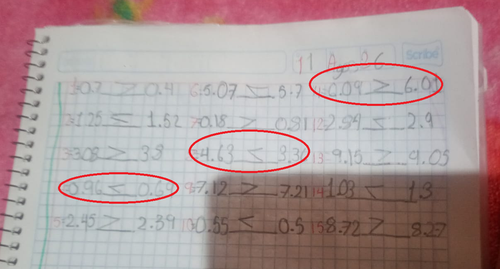 11 Ag 26 Scribe
1) 0.7 > 0.4 6) 5.07 < 5.7 11) 0.09 > 6.01
2) 1.25 < 1.52 7) 0.18 > 0.81 12) 2.59 < 2.9
3) 3.08 > 3.8 8) 4.63 < 3.36 13) 9.15 > 9.05
4) 0.96 < 0.69 9) 7.12 > 7.21 14) 1.03 < 1.3
5) 2.45 > 2.39 10) 0.55 < 0.5 15) 8.72 > 8.27